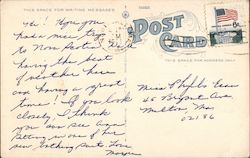 THIS SPACE FOR WRITING MESSAGES
POST CARD
THIS SPACE FOR ADDRESS ONLY
Hi! Hope you
had a nice
to New . We're
having the best
of weather here
and having a great
time! If you look
closely, I think
you can see Ann
sitting in one of her
new bathing suits. Love
Miss Phyllis
65 Bryant Ave.
Milton, Mass
02186